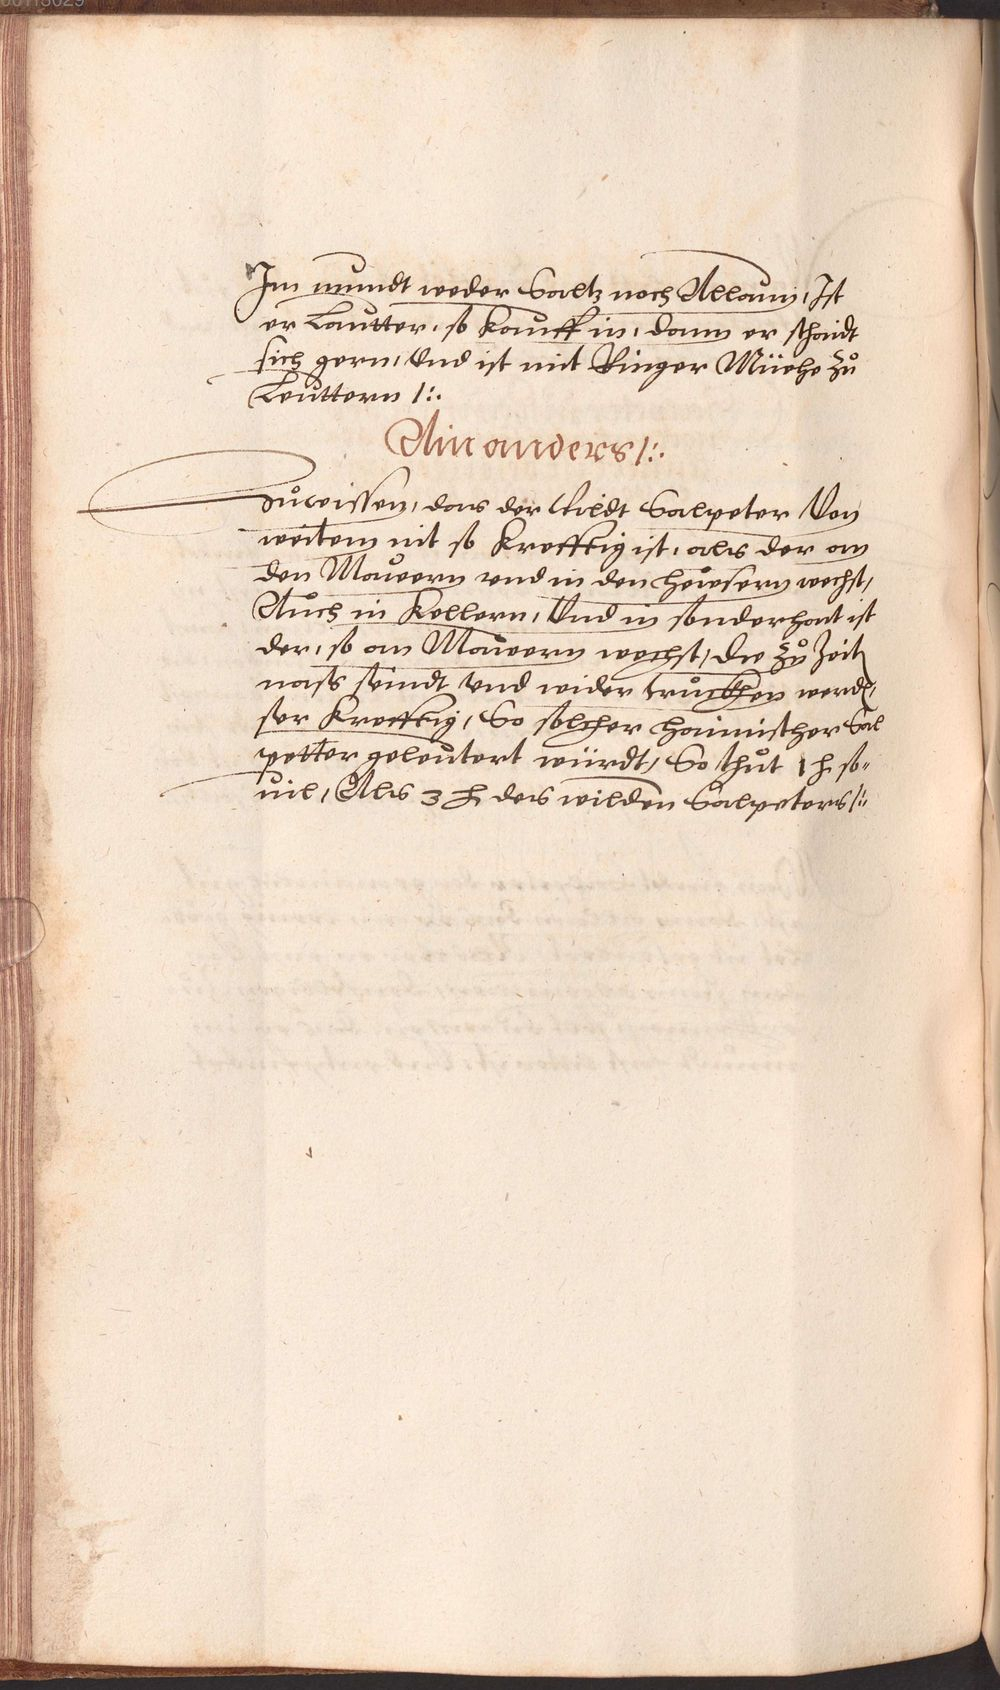 Im mundt weder Saltz noch Allaun, Ist
er Lautter, so kauff in, dann er schaidt
sich gern, Und ist mit Ringer Müehe Zů
Leuttern /:.
Ain anders /:.
Zůwissen, das der wildt Salpeter Von
weitem nit so Krefftig ist, als der an
den Mauern vnd in den heusern wechst,
Auch in Kellern, Und in sonderhait ist
der, so an Mauern wechst, die Zů Zeitn
nass seindt vnd wider truckhen werdn,
ser Krefftig, So solcher haimischer Sal
petter geleutert würdt, So thůt 1 ℔ so=
uil, Als 3 ℔ des wilden Salpeters /:.